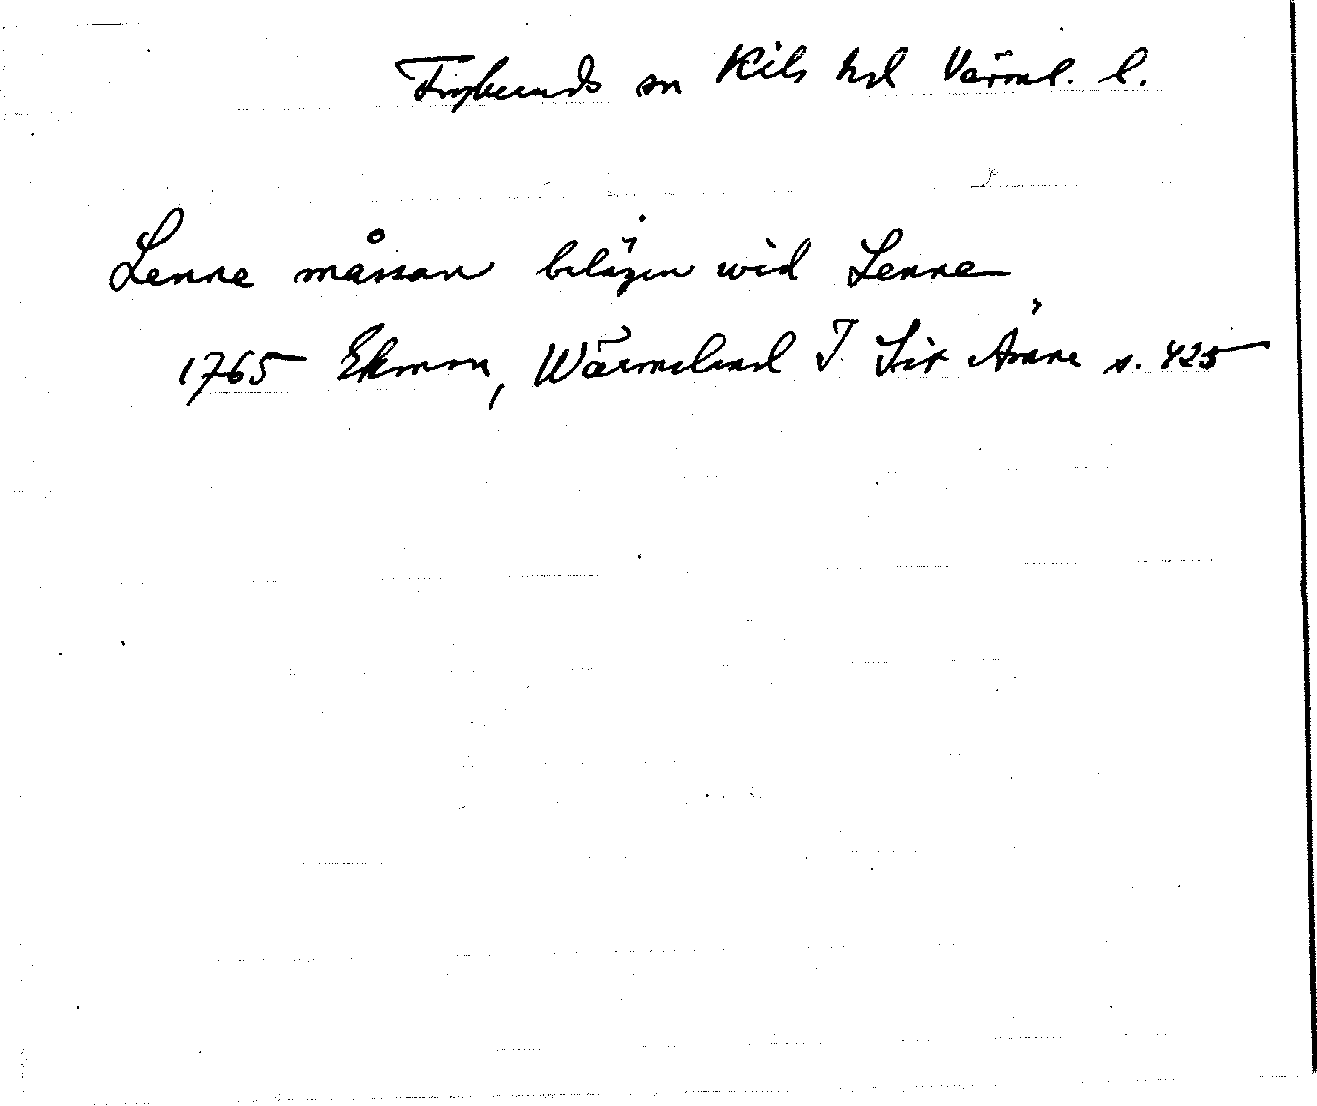 Frykeruds sn Kils hd Värml. l.
Lenne måssan belägen wid Lenne
1765 Ekman, Wärmeland I Sir Ämne s. 425